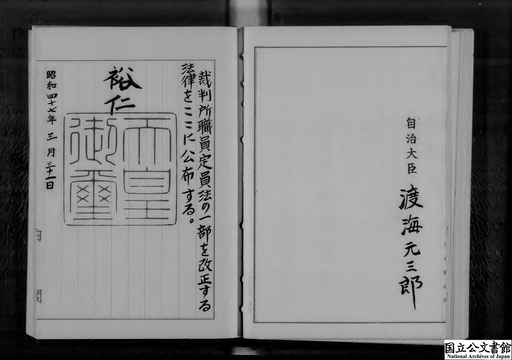 自治大臣
渡海元三郎
裁判所職員定員法の一部を改正する
法律をここに公布する。
裕仁
天皇
御璽
昭和四十七年三月三十一日
内閣
国立公文書館
National Archives of Japan